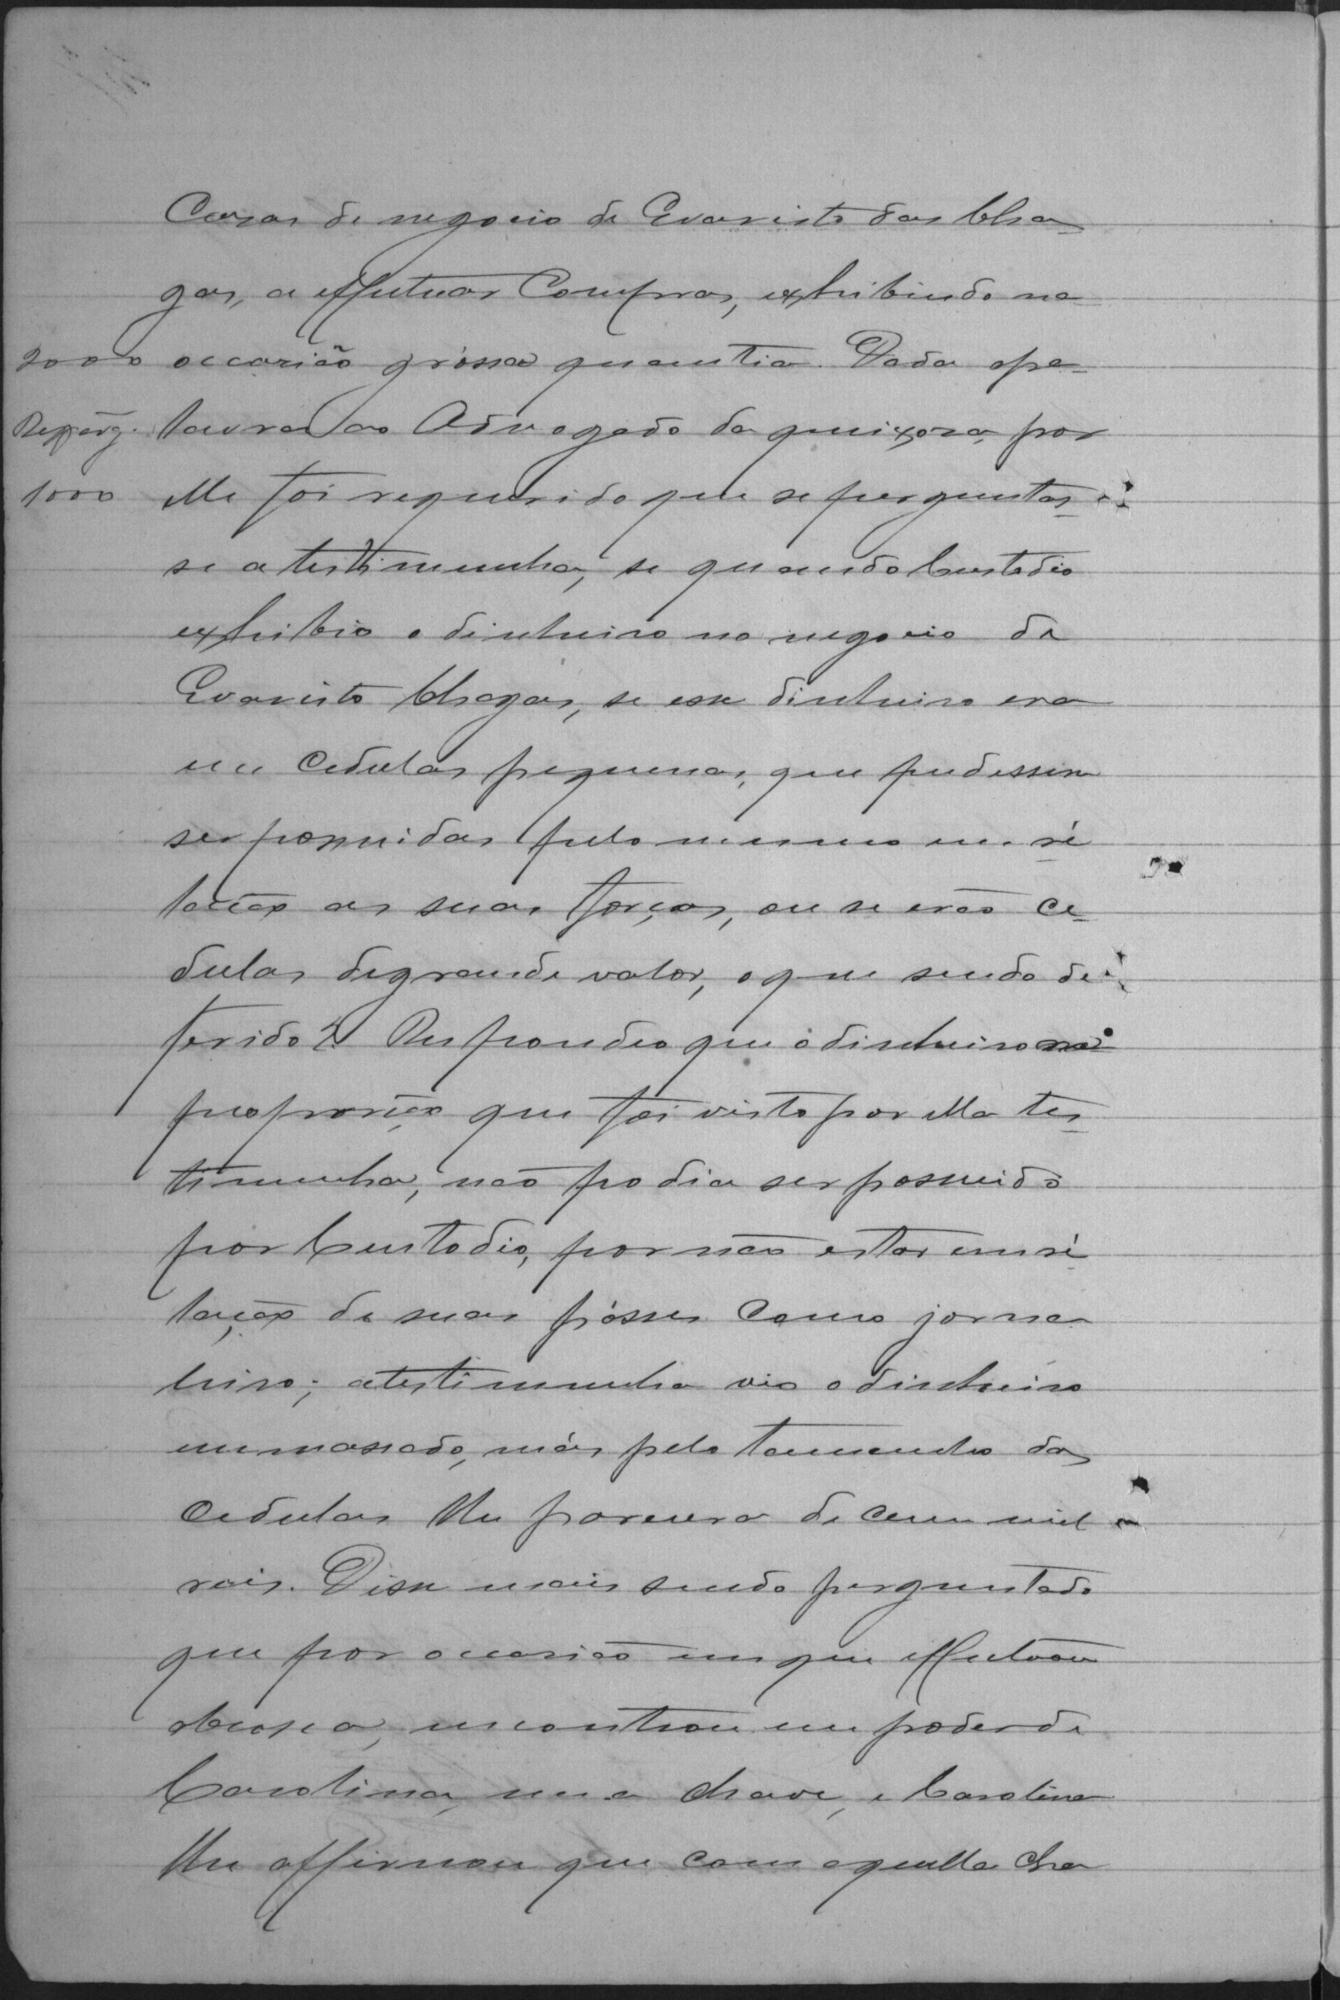 Casas de negocio de Evaristo das Cha-
gas, a effetuar Compras, exhibindo na
2000 occasião gróssa quantia. Dada apa-
Reperg. lavra ao Advogado da queixosa, por
1000 elle foi requerido que se perguntas-
se a testimunha, se quando Custodio
exhibio o dinheiro no negocio de
Evaristo Chagas, se esse dinheiro era
em Cedulas pequenas, que pudessem
ser possuidas pelo mesmo em ré
lação as suas forças, ou se erão Ce-
dulas degrande valor, oque sendo de-
ferido? Respondeo que o dinheiro na
proporção que foi visto por ella tes-
timunha, não podia ser possuido
por Custodio, por não estar em ré
lação de suas pósses como jorna
leiro; atestimunha vio o dinheiro
emmassado, más pelo tamanho das
Cedulas lhe parecera de cem mil
rais. Disse mais sendo perguntado
que por occasião em que effetuou
abusca, encontrou em poder de
Carolina, uma chave, e Carolina
lhe affirmou que com aquella cha